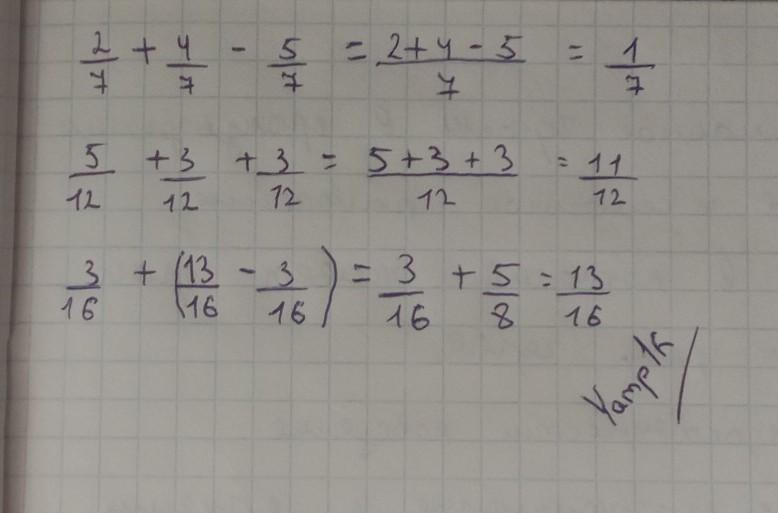 2/7 + 4/7 - 5/7 = (2+4-5)/7 = 1/7
5/12 + 3/12 + 3/12 = (5+3+3)/12 = 11/12
3/16 + (13/16 - 3/16) = 3/16 + 5/8 = 13/16